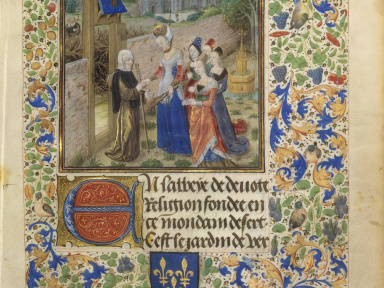 En labbeye de deuote
Religion fondee en
ce mondain desert
Cest le jardin de ver